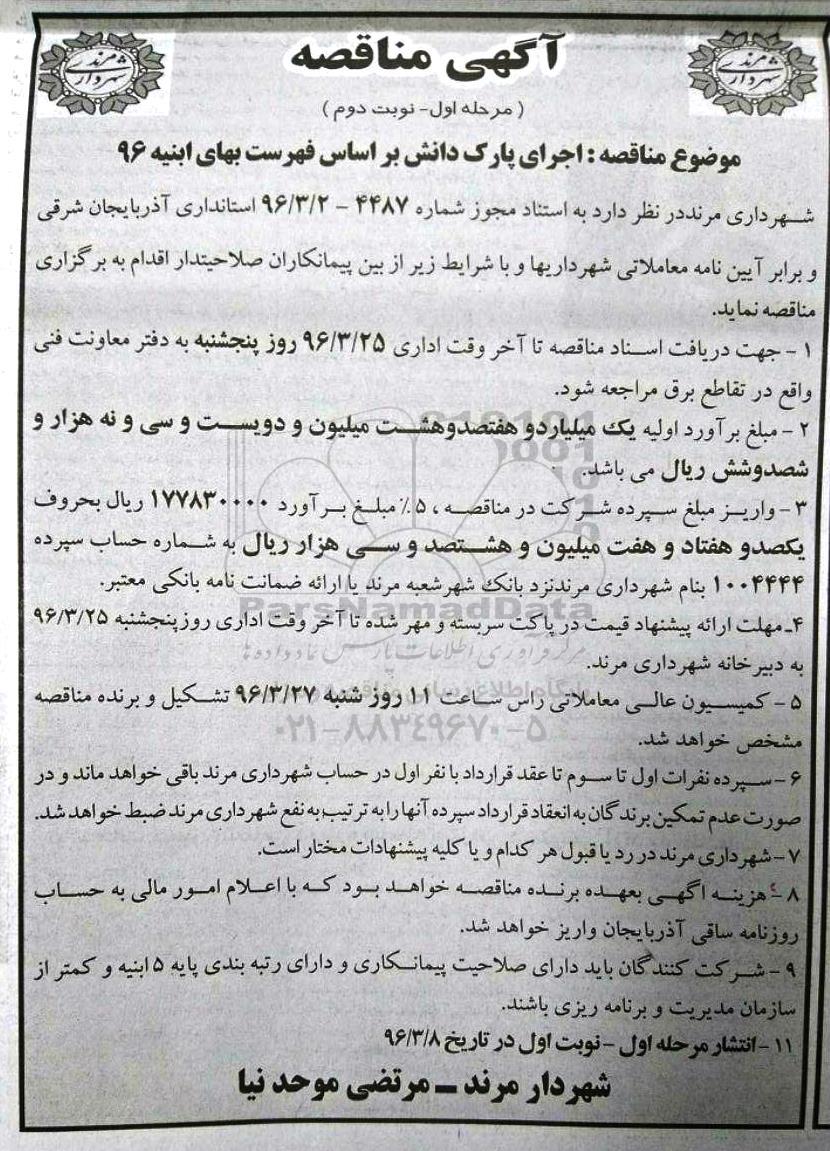 آگهی مناقصه
شهرداری مرند
شهرداری مرند
( مرحله اول- نوبت دوم )
موضوع مناقصه : اجرای پارک دانش بر اساس فهرست بهای ابنیه ۹۶
شهرداری مرنددر نظر دارد به استناد مجوز شماره ۴۴۸۷ - ۹۶/۳/۲ استانداری آذربایجان شرقی
و برابر آیین نامه معاملاتی شهرداریها و با شرایط زیر از بین پیمانکاران صلاحیتدار اقدام به برگزاری
مناقصه نماید.
۱ - جهت دریافت اسناد مناقصه تا آخر وقت اداری ۹۶/۳/۲۵ روز پنجشنبه به دفتر معاونت فنی
واقع در تقاطع برق مراجعه شود.
۲ - مبلغ برآورد اولیه یک میلیاردو هفتصدوهشت میلیون و دویست و سی و نه هزار و
شصدوشش ریال می باشد.
۳ - واریز مبلغ سپرده شرکت در مناقصه ، ۵٪ مبلغ برآورد ۱۷۷۸۳۰۰۰۰ ریال بحروف
یکصدو هفتاد و هفت میلیون و هشتصد و سی هزار ریال به شماره حساب سپرده
۱۰۰۴۴۴۴ بنام شهرداری مرندنزد بانک شهرشعبه مرند یا ارائه ضمانت نامه بانکی معتبر.
۴ـ مهلت ارائه پیشنهاد قیمت در پاکت سربسته و مهر شده تا آخر وقت اداری روزپنجشنبه ۹۶/۳/۲۵
به دبیرخانه شهرداری مرند.
۵ - کمیسیون عالی معاملاتی راس ساعت ۱۱ روز شنبه ۹۶/۳/۲۷ تشکیل و برنده مناقصه
مشخص خواهد شد.
۶ - سپرده نفرات اول تا سوم تا عقد قرارداد با نفر اول در حساب شهرداری مرند باقی خواهد ماند و در
صورت عدم تمکین برندگان به انعقاد قرارداد سپرده آنها را به ترتیب به نفع شهرداری مرند ضبط خواهد شد.
۷ - شهرداری مرند در رد یا قبول هر کدام و یا کلیه پیشنهادات مختار است.
۸ - هزینه آگهی بعهده برنده مناقصه خواهد بود که با اعلام امور مالی به حساب
روزنامه ساقی آذربایجان واریز خواهد شد.
۹ - شرکت کنندگان باید دارای صلاحیت پیمانکاری و دارای رتبه بندی پایه ۵ ابنیه و کمتر از
سازمان مدیریت و برنامه ریزی باشند.
۱۱ - انتشار مرحله اول - نوبت اول در تاریخ ۹۶/۳/۸
شهردار مرند ـ مرتضی موحد نیا
ParsNamadData
مرکز فرآوری اطلاعات پارس نماد داده ها
۰۲۱-۸۸۳۴۹۶۷۰-۵